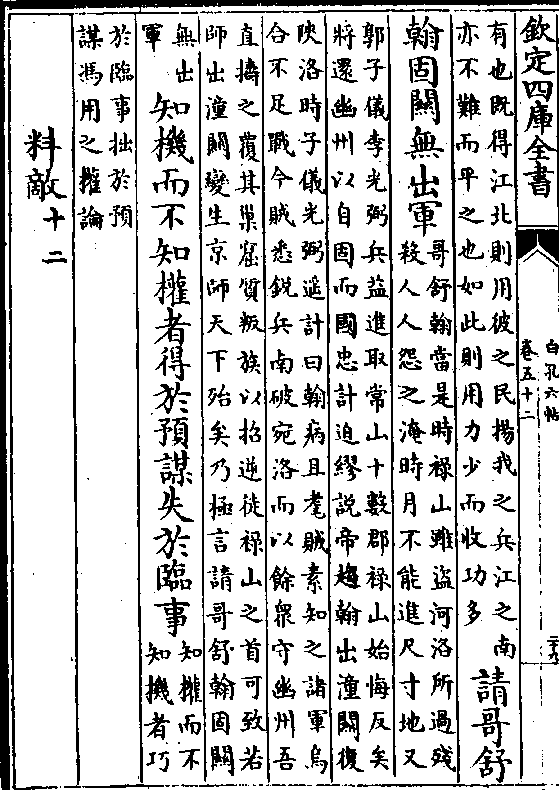 欽定四庫全書
白孔六帖
卷五十二
二十九
有也既得江北則用彼之民揚我之兵江之南
亦不難而平之也如此則用力少而收功多
請哥舒
翰固關無出軍
哥舒翰當是時禄山雖盜河洛所過殘
殺人人怨之淹時月不能進尺寸地又
郭子儀李光弼兵益進取常山十數郡禄山始悔反矣
將還幽州以自固而國忠計迫繆說帝趣翰出潼關復
陜洛時子儀光弼遥計曰翰病且耄賊素知之諸軍烏
合不足戰今賊悉銳兵南破宛洛而以餘衆守幽州吾
直擣之覆其巢窟質叛族以招逆徒禄山之首可致若
師出潼關變生京師天下殆矣乃極言請哥舒翰固關
無出
軍
知機而不知權者得於預謀失於臨事
知權而不
知機者巧
於臨事拙於預
謀馮用之權論
料敵十二